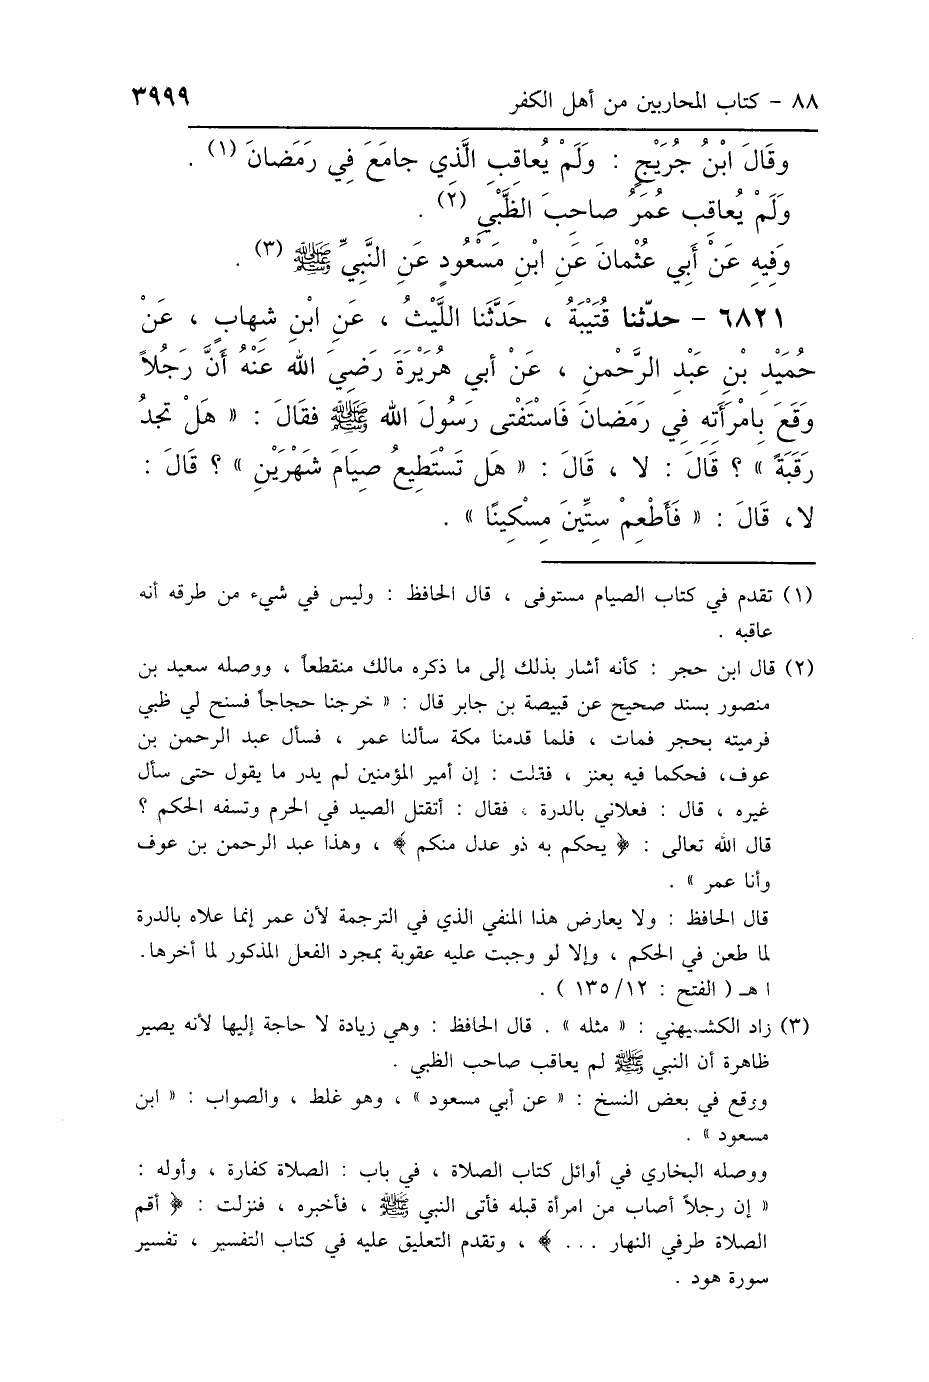 ٨٨ - كتاب المحاربين من أهل الكفر ٣٩٩٩
وقَالَ ابْنُ جُرَيْجٍ : ولَمْ يُعاقِبِ الَّذي جامَعَ فِي رَمَضانَ (١) .
ولَمْ يُعاقِبِ عُمَرُ صاحِبَ الظَّبْيِ (٢) .
وَفِيهِ عَنْ أَبِي عُثْمانَ عَنِ ابْنِ مَسْعُودٍ عَنِ النَّبِيِّ ﷺ (٣) .
٦٨٢١ - حدّثنا قُتَيْبَةُ ، حَدَّثَنا اللَّيْثُ ، عَنِ ابْنِ شهابٍ ، عَنْ
حُمَيْدِ بْنِ عَبْدِ الرَّحْمنِ ، عَنْ أبي هُرَيْرَةَ رَضِيَ الله عَنْهُ أَنَّ رَجُلاً
وَقَعَ بِامْرَأَتِهِ فِي رَمَضانَ فَاسْتَفْتى رَسُولَ الله ﷺ فقَالَ : « هَلْ تَجِدُ
رَقَبَةً » ؟ قَالَ : لا ، قَالَ : « هَل تَسْتَطِيعُ صِيَامَ شَهْرَيْنِ » ؟ قَالَ :
لا، قَالَ : « فَأَطْعِمْ سِتِّينَ مِسْكِينًا » .
(١) تقدم في كتاب الصيام مستوفى ، قال الحافظ : وليس في شيء من طرقه أنه
عاقبه .
(٢) قال ابن حجر : كأنه أشار بذلك إلى ما ذكره مالك منقطعاً ، ووصله سعيد بن
منصور بسند صحيح عن قبيصة بن جابر قال : « خرجنا حجاجاً فسنح لي ظبي
فرميته بحجر فمات ، فلما قدمنا مكة سألنا عمر ، فسأل عبد الرحمن بن
عوف، فحكما فيه بعنز ، فقلت : إن أمير المؤمنين لم يدر ما يقول حتى سأل
غيره ، قال : فعلاني بالدرة ، فقال : أتقتل الصيد في الحرم وتسفه الحكم ؟
قال الله تعالى : ﴿ يحكم به ذو عدل منكم ﴾ ، وهذا عبد الرحمن بن عوف
وأنا عمر » .
قال الحافظ : ولا يعارض هذا المنفي الذي في الترجمة لأن عمر إنما علاه بالدرة
لما طعن في الحكم ، وإلا لو وجبت عليه عقوبة بمجرد الفعل المذكور لما أخرها.
ا هـ ( الفتح : ١٣٥/١٢ ) .
(٣) زاد الكشميهني : « مثله » . قال الحافظ : وهي زيادة لا حاجة إليها لأنه يصير
ظاهرة أن النبي ﷺ لم يعاقب صاحب الظبي .
ووقع في بعض النسخ : « عن أبي مسعود » ، وهو غلط ، والصواب : « ابن
مسعود » .
ووصله البخاري في أوائل كتاب الصلاة ، في باب : الصلاة كفارة ، وأوله :
« إن رجلاً أصاب من امرأة قبله فأتى النبي ﷺ ، فأخبره ، فنزلت : ﴿ أقم
الصلاة طرفي النهار ... ﴾ ، وتقدم التعليق عليه في كتاب التفسير ، تفسير
سورة هود .